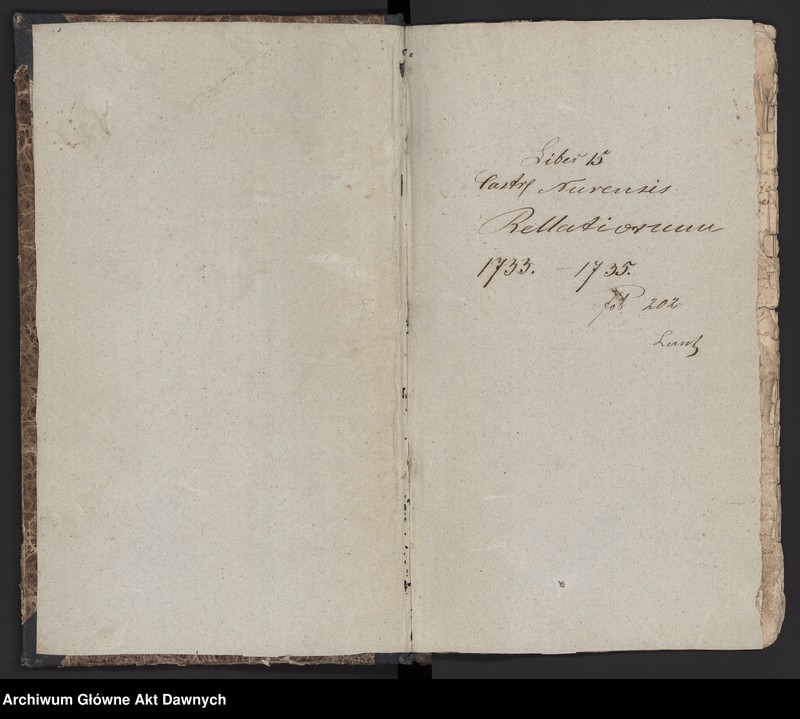 Liber 15
Castr. Nurensis
Rellatiorum
1733. - 1735.
fol 202
Archiwum Główne Akt Dawnych